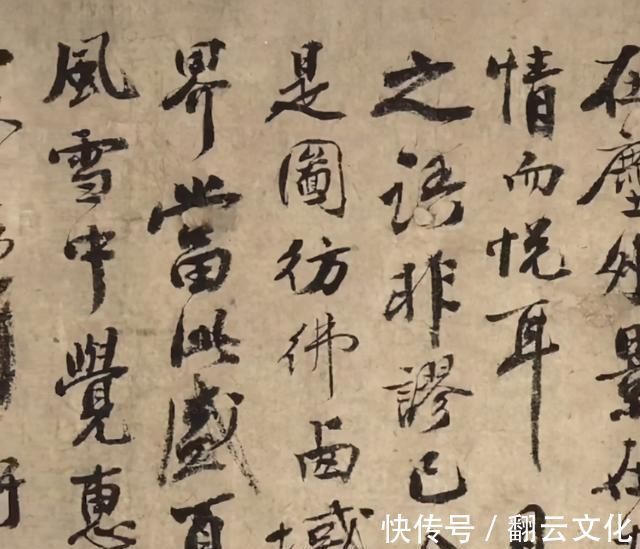 在塵外景在
情而悦耳
之語非謬已
是圖彷彿西域
界當此盛夏
風雪中覺惠
快传号 / 翻云文化